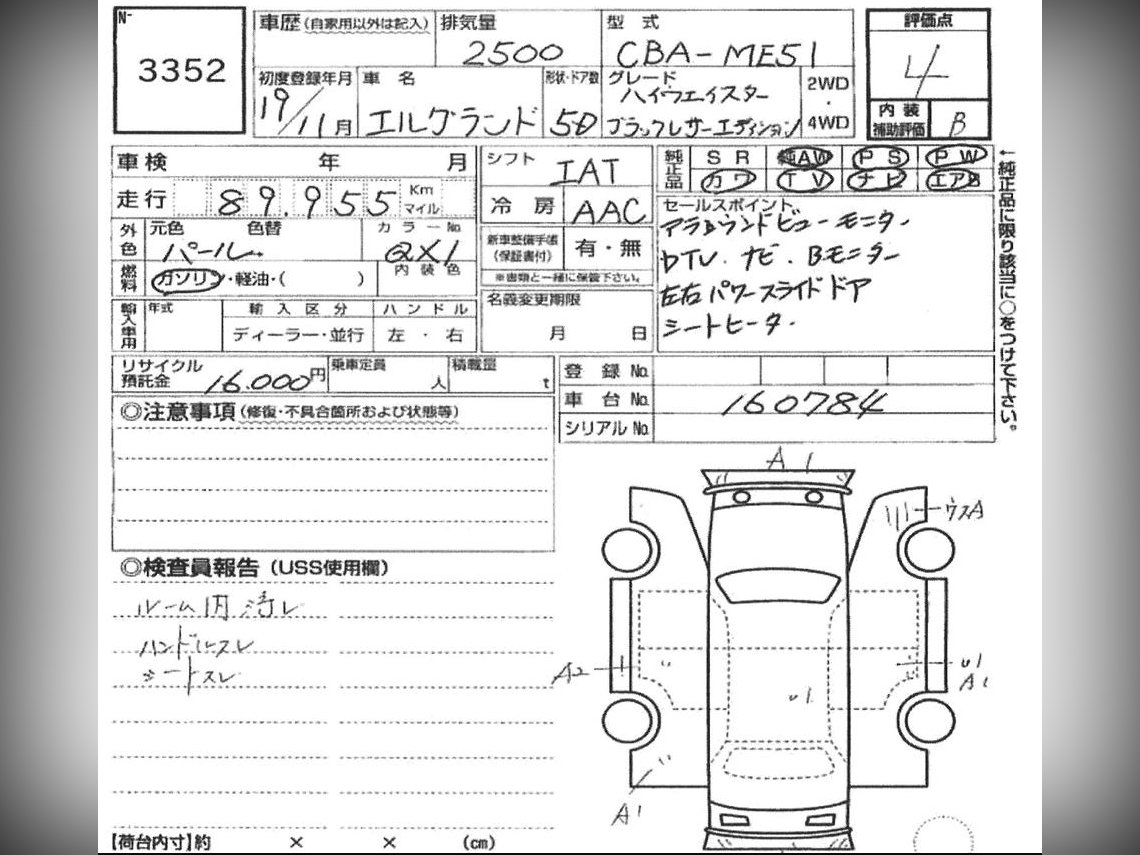 N-
3352
車歴 (自家用以外は記入)
排気量
2500
型式
CBA-ME51
評価点
4
初度登録年月
19/11月
車名
エルグランド
形状・ドア数
5D
グレード
ハイウェイスター
ブラックレザーエディション
2WD
・
4WD
内装
補助評価
B
車検 年 月
シフト
IAT
純正品
SR 純AW PS PW
カワ TV ナビ エアB
←純正品に限り該当に○をつけて下さい。
走行
89.955
Km
マイル
冷房
AAC
セールスポイント
アラウンドビューモニター.
DTV.ナビ.Bモニター
左右パワースライドドア
シートヒーター.
外色
元色 色替
パール.
カラーNo.
QX1
新車整備手帳
(保証書付)
有・無
※書類と一緒に保管下さい。
燃料
ガソリン・軽油・( )
内装色
名義変更期限
月 日
輸入車用
年式
輸入区分
ディーラー・並行
ハンドル
左・右
リサイクル
預託金
16.000円
乗車定員
人
積載量
t
登録No.
車台No.
160784
シリアルNo.
◎注意事項 (修復・不具合箇所および状態等)
◎検査員報告 (USS使用欄)
ルーム内汚レ
ハンドルスレ
シートスレ
A1
ウスA
A2
U1
A1
U1
A1
【荷台内寸】約 × × (cm)